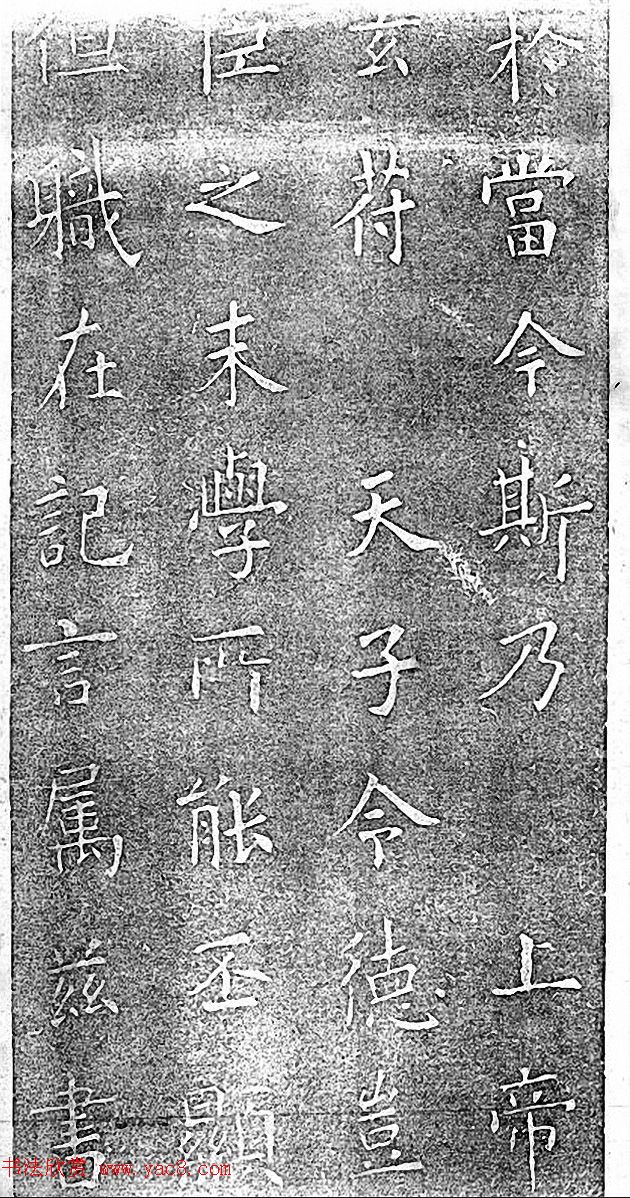 於當今斯乃上帝
玄苻天子令德豈
臣之末學所能丕顯
但職在記言属茲書
书法欣赏 www.yac8.com